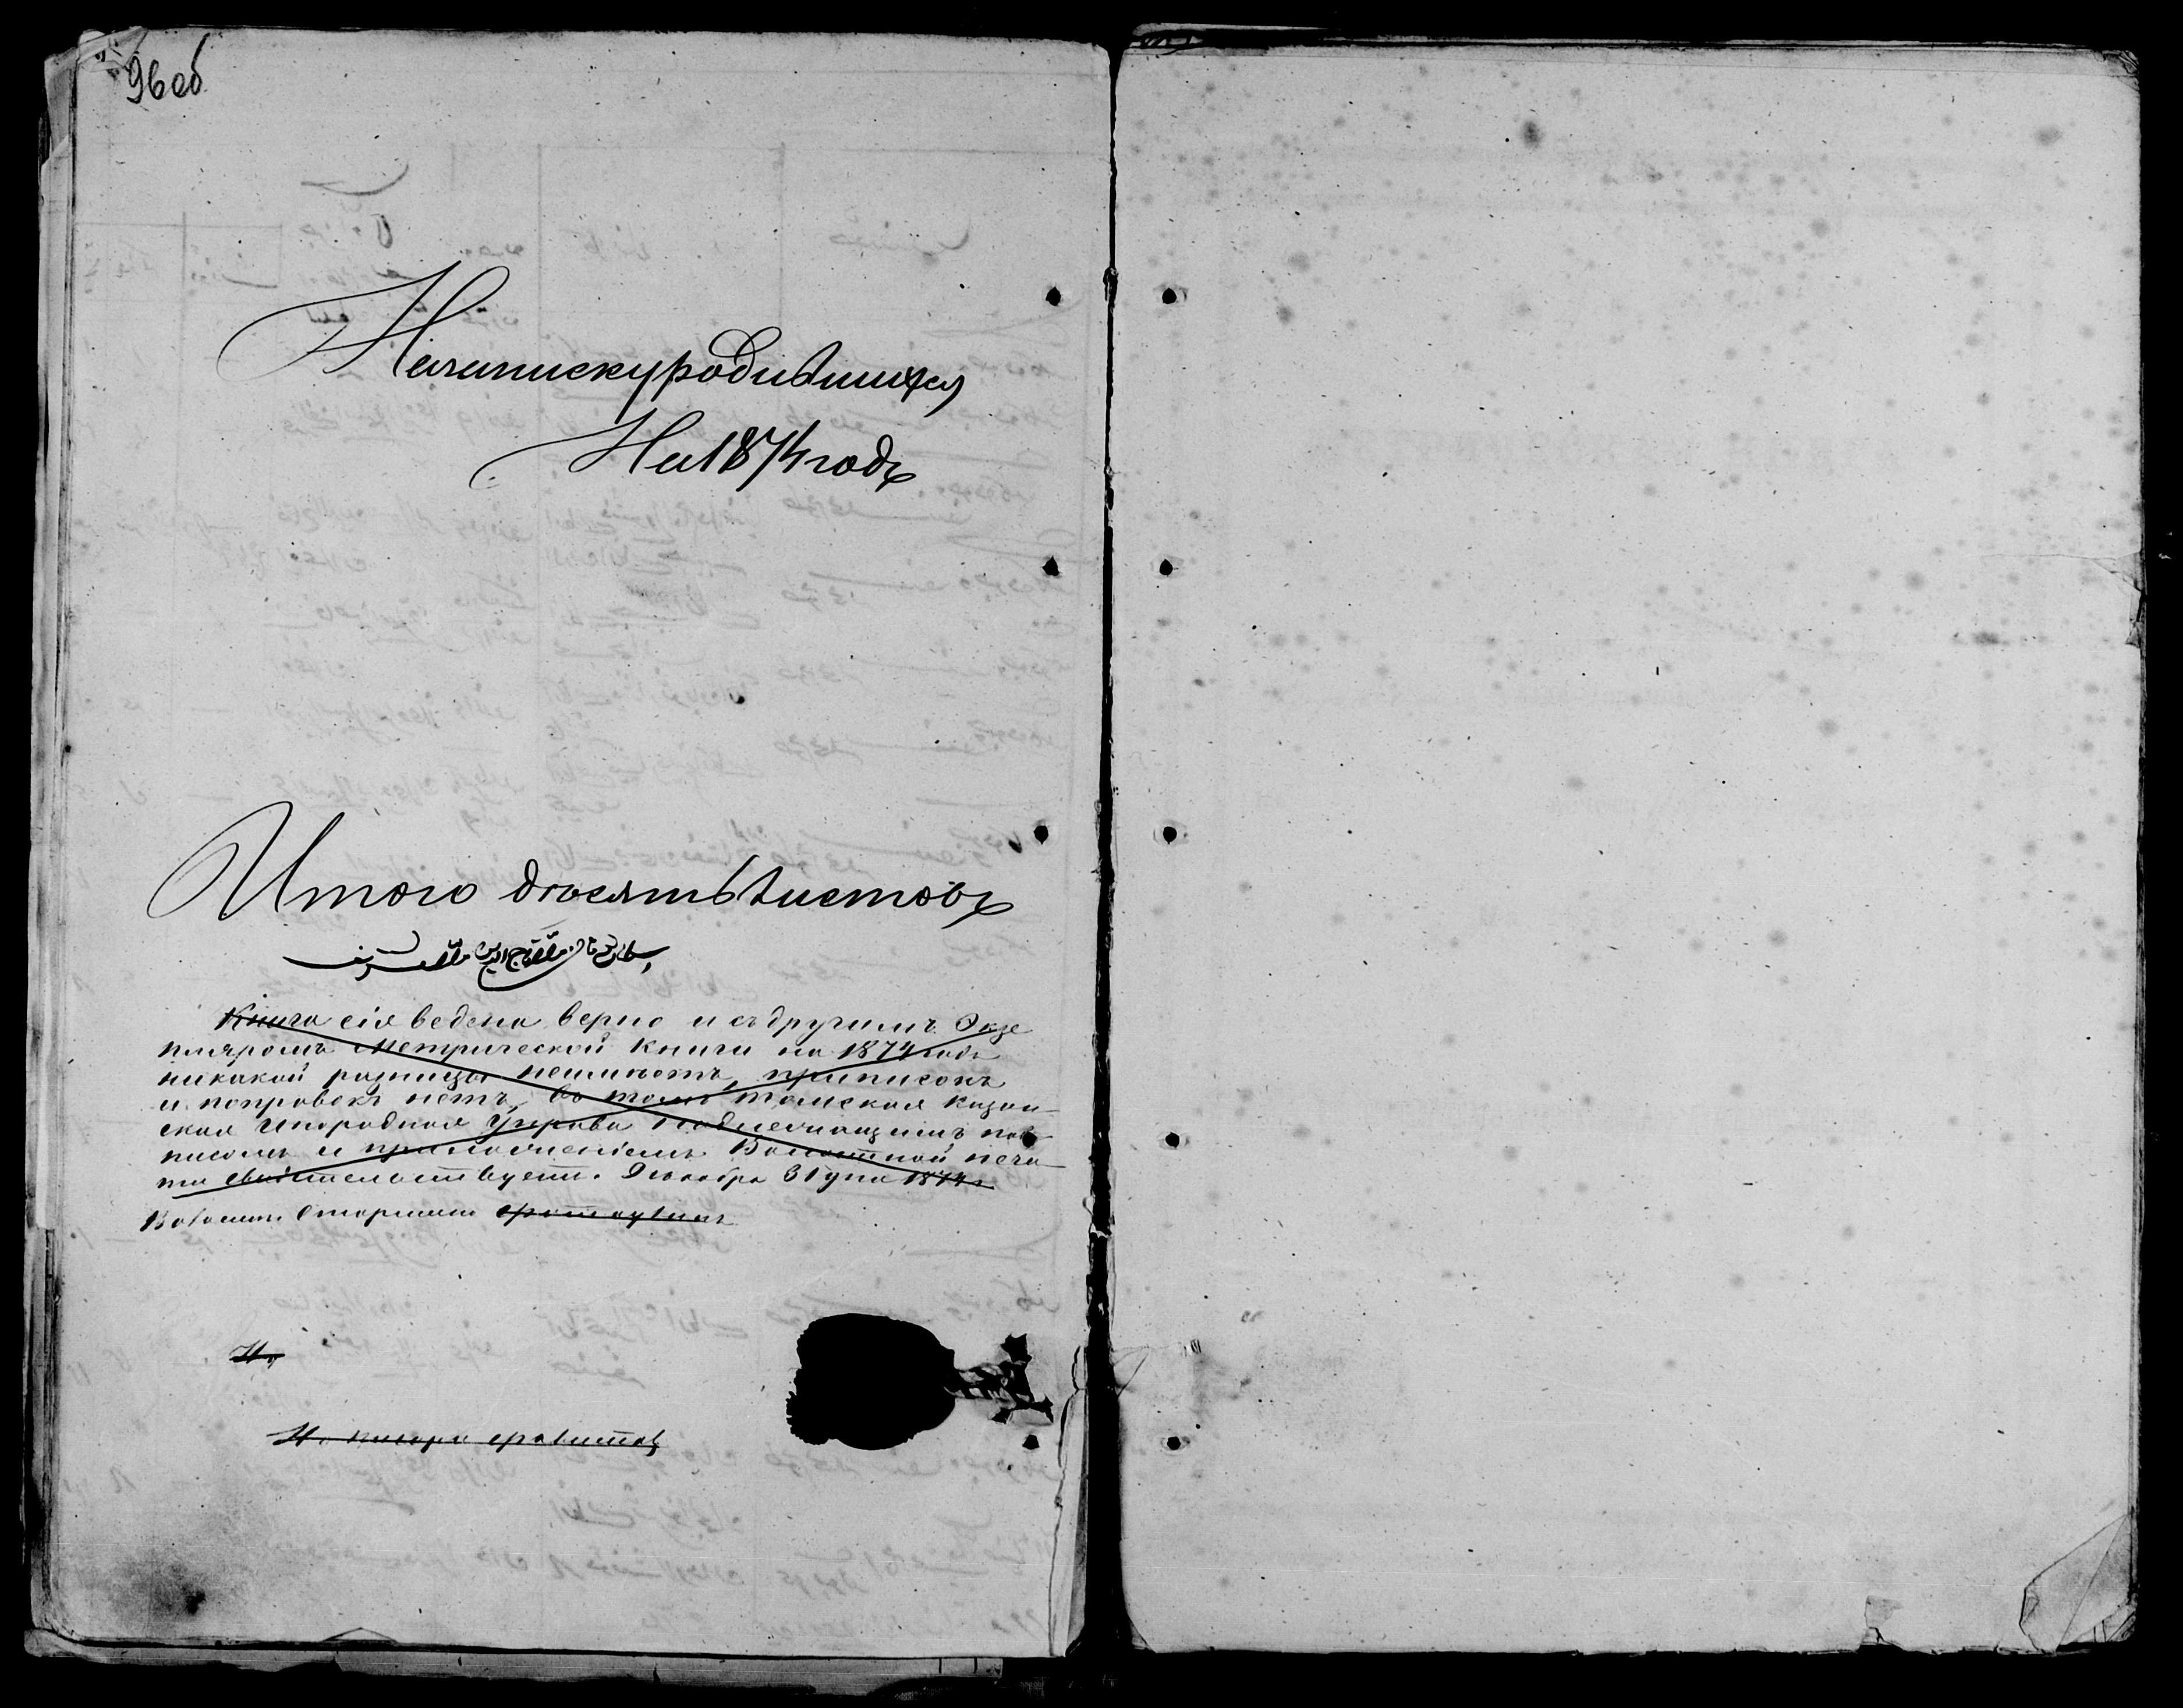 96 об
На записку родившихся
На 1874 годъ
Итого десять листовъ
Книга сія ведена верно и съ другимъ Экзе
пляромъ Метрической Книги на 1874 годъ
никакой разницы неимѣетъ, приписокъ
и поправокъ нетъ, въ томъ томская Казан-
ская Инородная Управа подлежащимъ под-
писомъ и приложеніемъ Волостной печа-
ти свидетельствуетъ. Декабря 31 дня 1874 г
И.
И. писаря